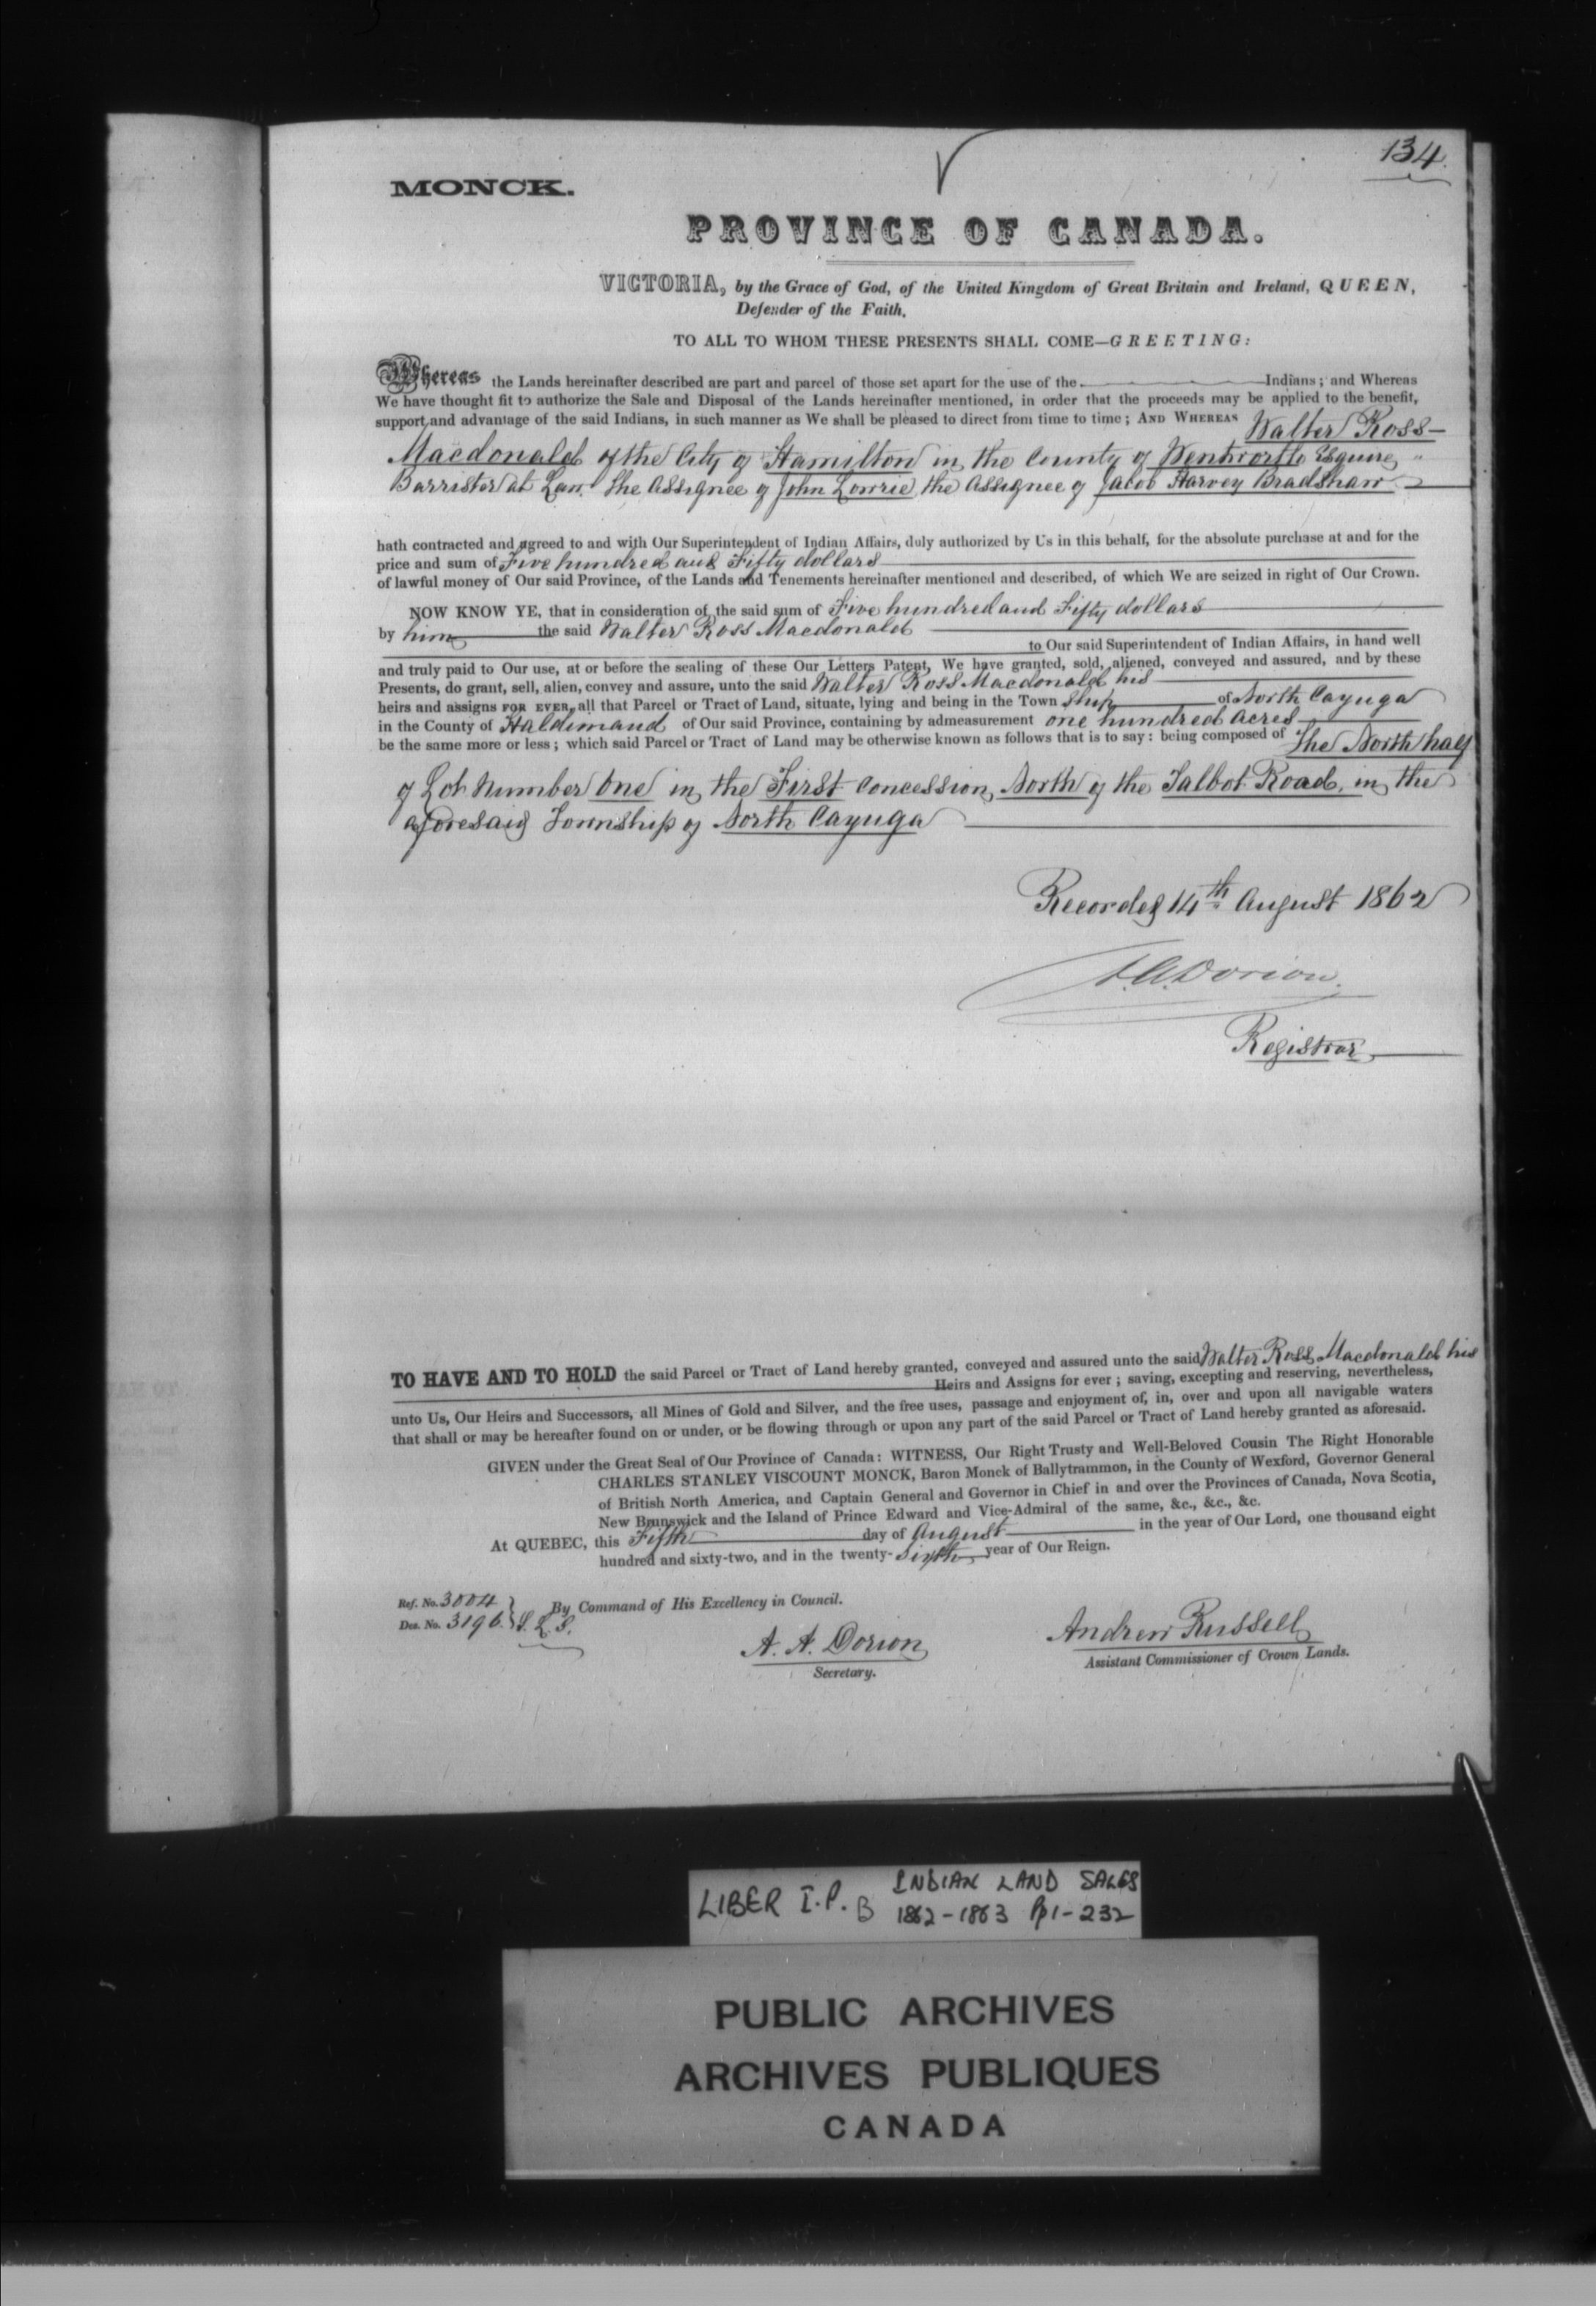 134.
MONCK.
PROVINCE OF CANADA.
VICTORIA, by the Grace of God, of the United Kingdom of Great Britain and Ireland, QUEEN,
Defender of the Faith.
TO ALL TO WHOM THESE PRESENTS SHALL COME—GREETING:
Whereas the Lands hereinafter described are part and parcel of those set apart for the use of the Indians; and Whereas
We have thought fit to authorize the Sale and Disposal of the Lands hereinafter mentioned, in order that the proceeds may be applied to the benefit,
support and advantage of the said Indians, in such manner as We shall be pleased to direct from time to time; AND WHEREAS Walter Ross
Macdonald of the City of Hamilton in the County of Wentworth Esquire,
Barrister at Law the Assignee of John Lowrie, the Assignee of Jacob Harvey Bradshaw
hath contracted and agreed to and with Our Superintendent of Indian Affairs, duly authorized by Us in this behalf, for the absolute purchase at and for the
price and sum of Five hundred and Fifty dollars
of lawful money of Our said Province, of the Lands and Tenements hereinafter mentioned and described, of which We are seized in right of Our Crown.
NOW KNOW YE, that in consideration of the said sum of Five hundred and Fifty dollars
by him the said Walter Ross Macdonald
to Our said Superintendent of Indian Affairs, in hand well
and truly paid to Our use, at or before the sealing of these Our Letters Patent, We have granted, sold, aliened, conveyed and assured, and by these
Presents, do grant, sell, alien, convey and assure, unto the said Walter Ross Macdonald his
heirs and assigns FOR EVER, all that Parcel or Tract of Land, situate, lying and being in the Town ship of North Cayuga
in the County of Haldimand of Our said Province, containing by admeasurement one hundred acres
be the same more or less; which said Parcel or Tract of Land may be otherwise known as follows that is to say: being composed of The North half
of Lot Number One in the First Concession, North of the Talbot Road, in the
aforesaid Township of North Cayuga
Recorded 14th August 1862
A.A. Dorion.
Registrar
TO HAVE AND TO HOLD the said Parcel or Tract of Land hereby granted, conveyed and assured unto the said Walter Ross Macdonald his
Heirs and Assigns for ever; saving, excepting and reserving, nevertheless,
unto Us, Our Heirs and Successors, all Mines of Gold and Silver, and the free uses, passage and enjoyment of, in, over and upon all navigable waters
that shall or may be hereafter found on or under, or be flowing through or upon any part of the said Parcel or Tract of Land hereby granted as aforesaid.
GIVEN under the Great Seal of Our Province of Canada: WITNESS, Our Right Trusty and Well-Beloved Cousin The Right Honorable
CHARLES STANLEY VISCOUNT MONCK, Baron Monck of Ballytrammon, in the County of Wexford, Governor General
of British North America, and Captain General and Governor in Chief in and over the Provinces of Canada, Nova Scotia,
New Brunswick and the Island of Prince Edward and Vice-Admiral of the same, &c., &c., &c.
At QUEBEC, this Fifth day of August in the year of Our Lord, one thousand eight
hundred and sixty-two, and in the twenty-sixth year of Our Reign.
Ref. No. 3004
By Command of His Excellency in Council.
Des. No. 3196.
A. A. Dorion
Secretary.
Andrew Russell
Assistant Commissioner of Crown Lands.
LIBER I.P. B INDIAN LAND SALES
1862-1863 Pp 1-232
PUBLIC ARCHIVES
ARCHIVES PUBLIQUES
CANADA